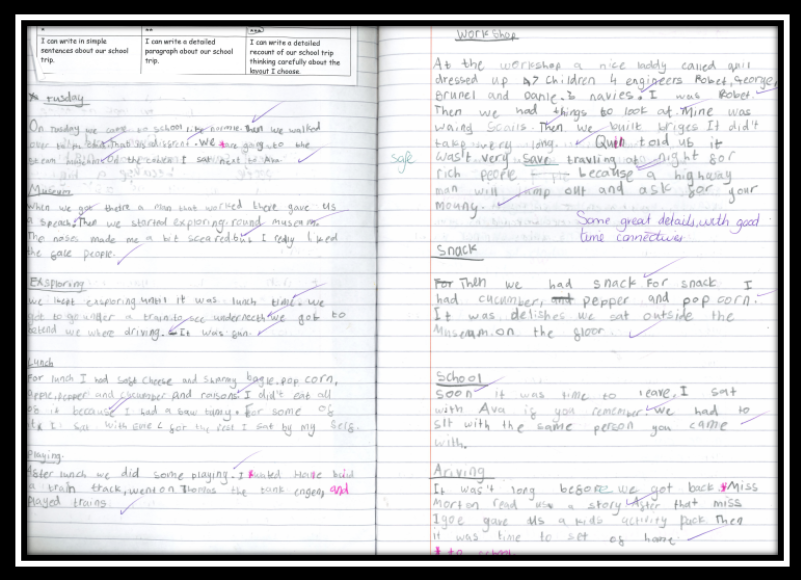 I can write in simple
sentences about our school
trip.
I can write a detailed
paragraph about our school
trip.
I can write a detailed
recount of our school trip
thinking carefully about the
layout I choose.
Tusday
On tusday we came to school, normle. then we walked
over to different. We are going to the
steam I sat next to Ava
Museum
When we got there a man that worked there gave us
a speach. Then we started exploring round museam.
The noses made me a bit sceared but I relly liked
the face people.
Exsploring
We kept exsploring until it was lunch time. We
got to go under a train to see underneeth we got to
pretend we where driving. It was fun
Lunch
For lunch I had soft cheese and bagle, pop corn,
apple, and cucumber and raisons. I didn't eat all
of it because I had a baw tumy. For some of
it I sat with for the rest I sat by my self.
Playing.
After lunch we did some playing. I
a train track, went on Thomas the tank engen, and
played trains
Workshop
At the workshop a nice laddy called
dressed up 47 children 4 engineers Robet, George,
Brunel and navies. I was Robet.
Then we had things to look at. Mine was
waing scails. Then we built briges It did't
take very long. told us it
safe
was't very save travling at night for
rich people because a highway
man will jump out and ask for your
mouny.
Some great details, with good
time connectives
Snack
For Then we had snack for snack I
had cucumber, and pepper and pop corn.
It was delishes we sat outside the
Museam on the floor.
School
Soon it was time to leave, I sat
with Ava if you remember. We had to
sit with the same person you came
with.
Ariving
It was't long before we got back. Miss
Morton read us a story After that miss
Igoe gave us a kids activity pack Then
it was time to set of home.
to school